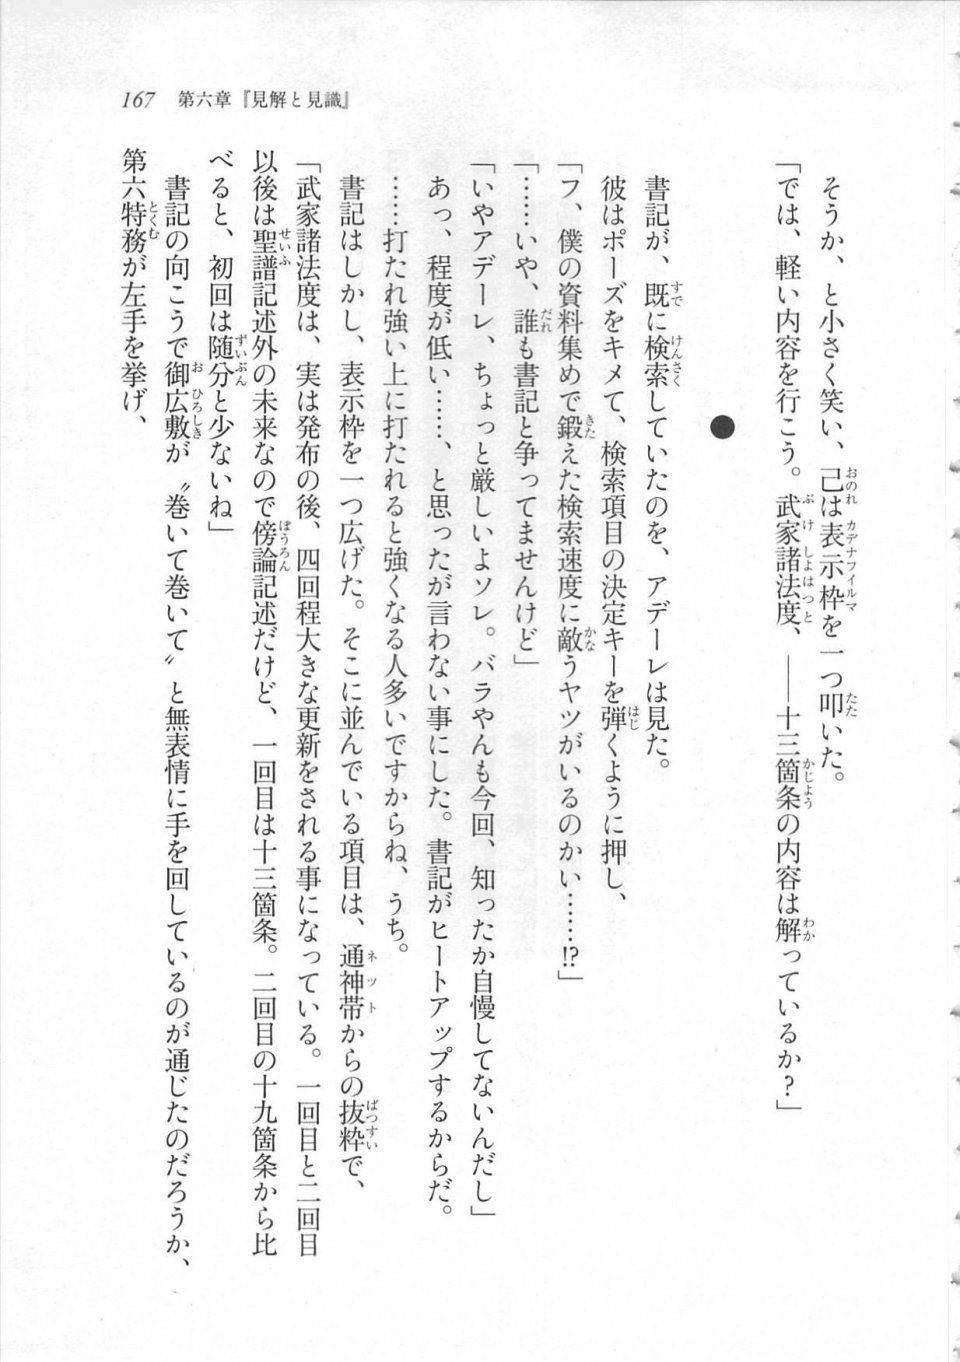 167 第六章『見解と見識』
そうか、と小さく笑い、己は表示枠を一つ叩いた。
「では、軽い内容を行こう。武家諸法度、――十三箇条の内容は解っているか?」
●
書記が、既に検索していたのを、アデーレは見た。
彼はポーズをキメて、検索項目の決定キーを弾くように押し、
「フ、僕の資料集めで鍛えた検索速度に敵うヤツがいるのかい……!?」
「……いや、誰も書記と争ってませんけど」
「いやアデーレ、ちょっと厳しいよソレ。バラやんも今回、知ったか自慢してないんだし」
あっ、程度が低い……、と思ったが言わない事にした。書記がヒートアップするからだ。
……打たれ強い上に打たれると強くなる人多いですからね、うち。
書記はしかし、表示枠を一つ広げた。そこに並んでいる項目は、通神帯からの抜粋で、
「武家諸法度は、実は発布の後、四回程大きな更新をされる事になっている。一回目と二回目
以後は聖譜記述外の未来なので傍論記述だけど、一回目は十三箇条。二回目の十九箇条から比
べると、初回は随分と少ないね」
書記の向こうで御広敷が〝巻いて巻いて〟と無表情に手を回しているのが通じたのだろうか、
第六特務が左手を挙げ、